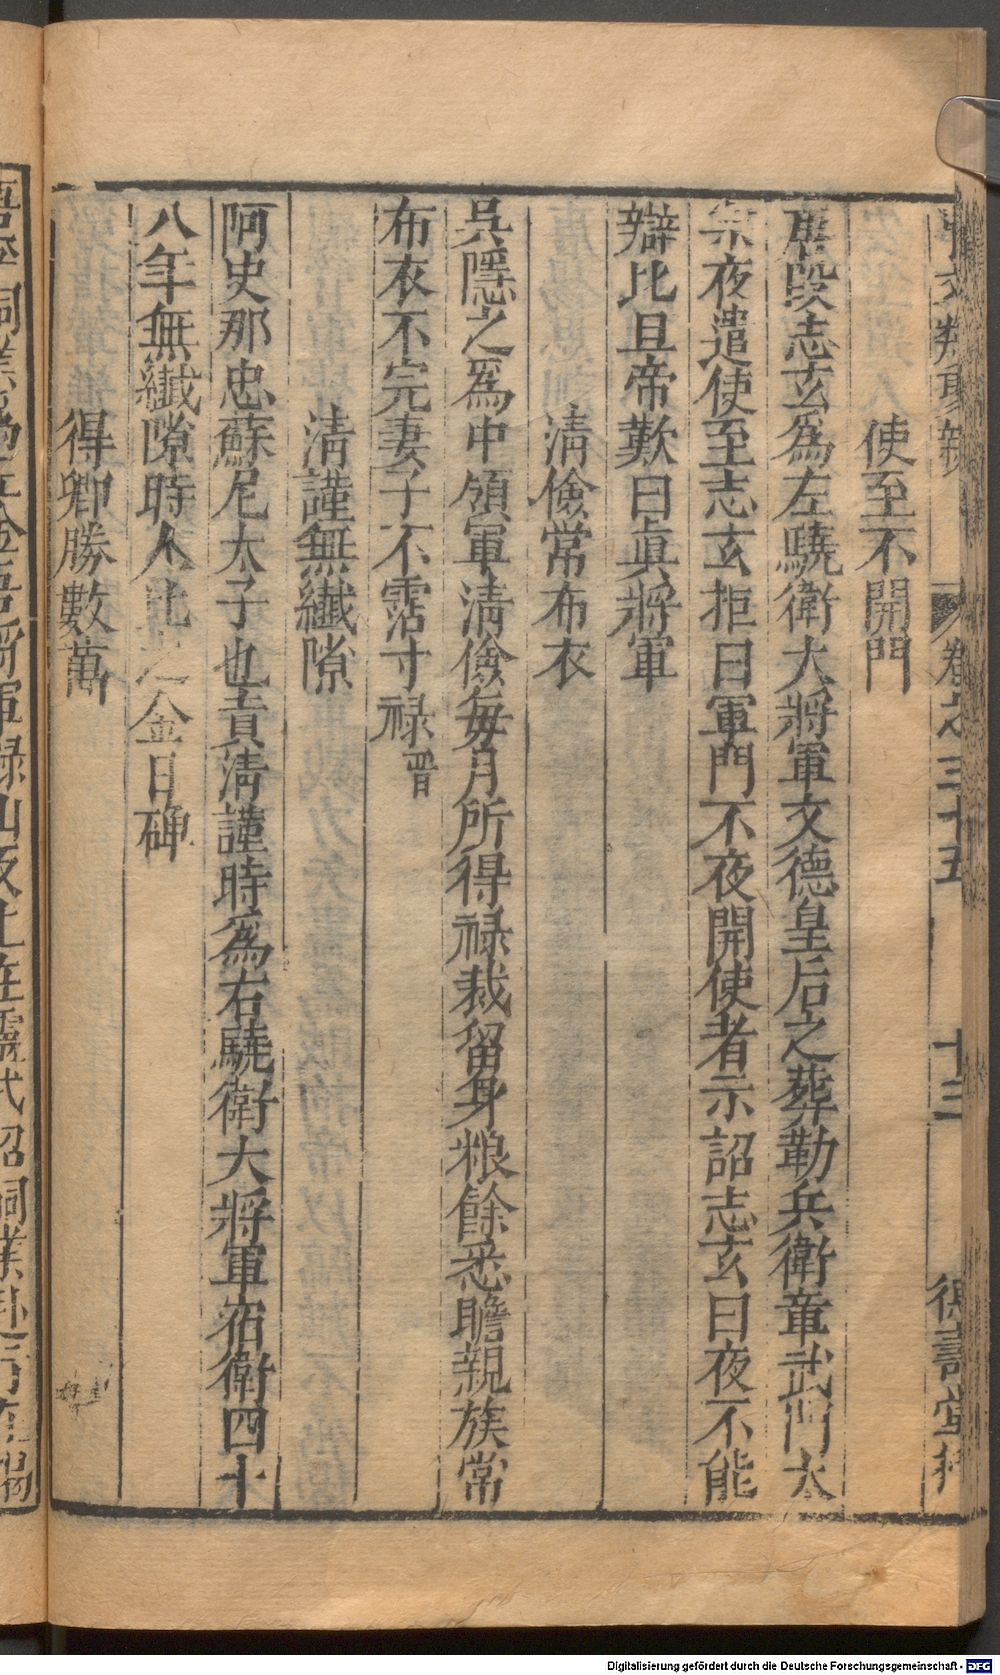 使至不開門
唐段志玄爲左驍衛大將軍文德皇后之葬勒兵衛章武門太
宗夜遣使至志玄拒曰軍門不夜開使者示詔志玄曰夜不能
辯比旦帝歎曰眞將軍
清儉常布衣
吳隱之爲中領軍清儉每月所得祿裁留身粮餘悉贍親族常
布衣不完妻子不霑寸祿晋
清謹無纖隙
阿史那忠蘇尼太子也責清謹時爲右驍衛大將軍宿衛四十
八年無纖隙時人比之金日磾
得卿勝數萬
卷之三十五 十三 德壽堂
Digitalisierung gefördert durch die Deutsche Forschungsgemeinschaft - DFG